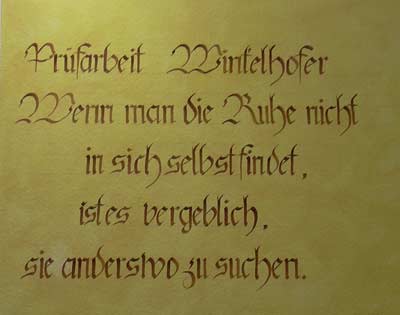 Prüfarbeit Winkelhofer
Wenn man die Ruhe nicht
in sich selbst findet,
ist es vergeblich,
sie anderswo zu suchen.